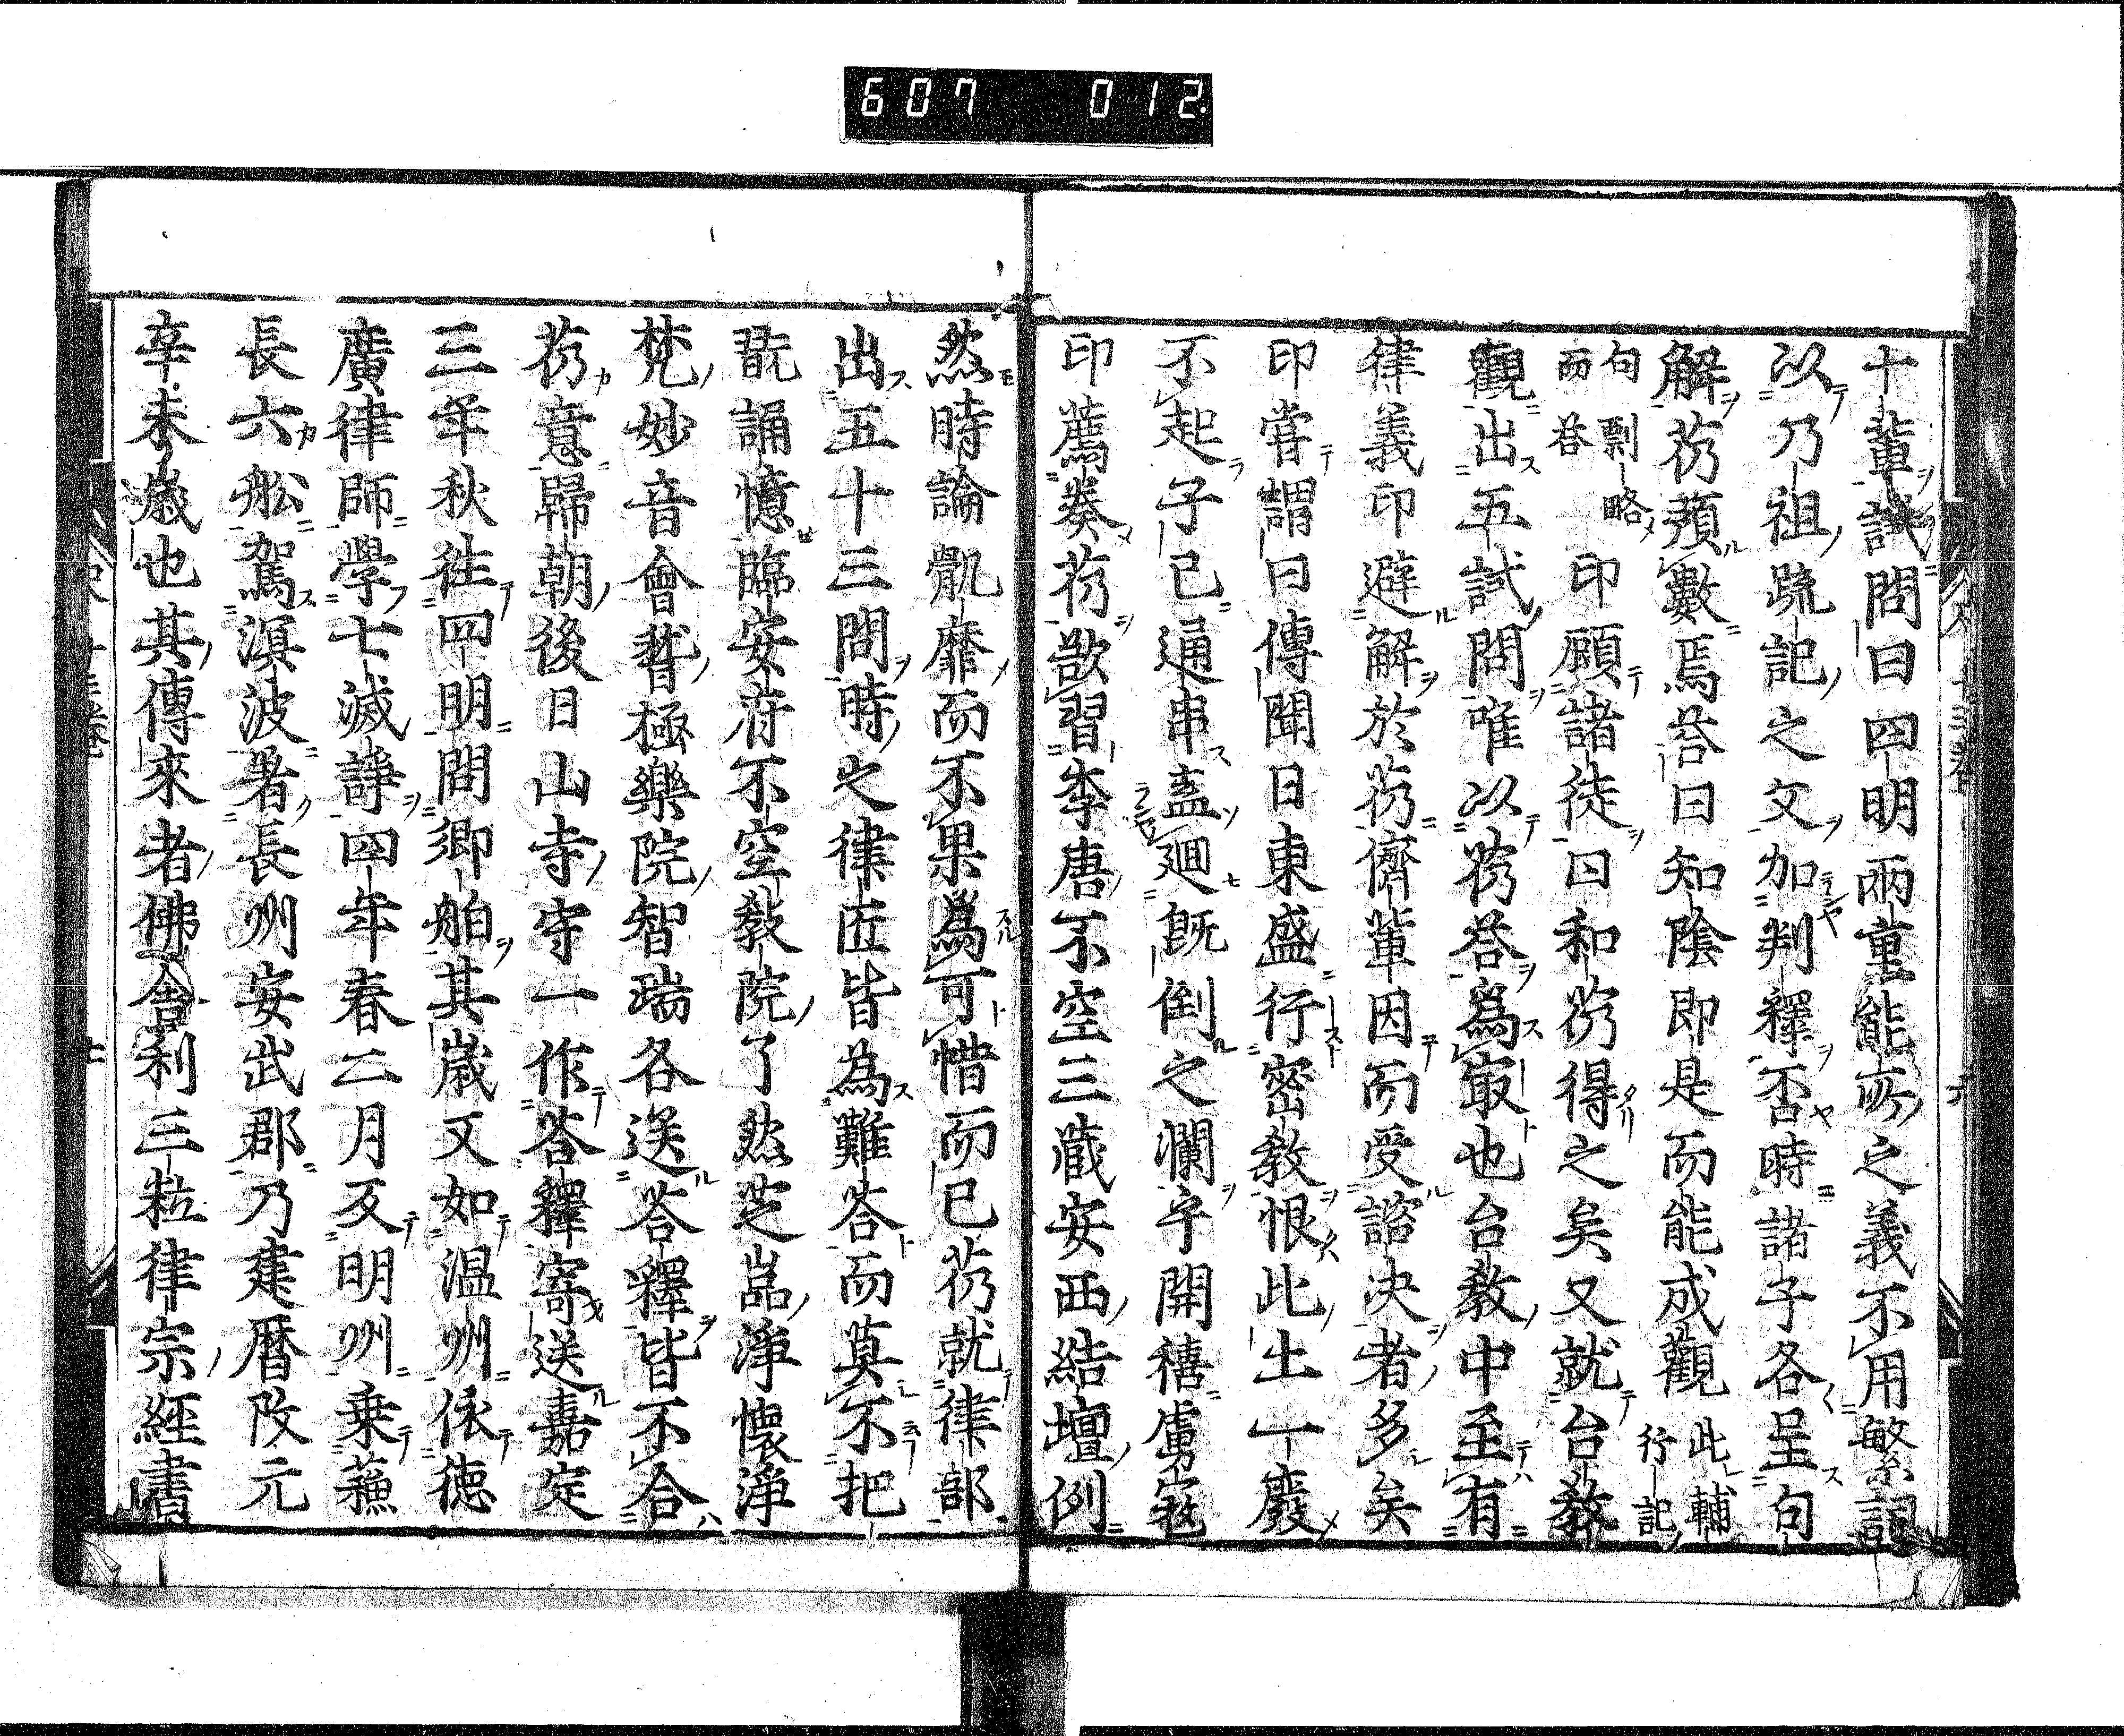 607 012
十輩試問曰四明兩重能所之義不用繁詞
以乃祖䟽記之文加判釋否時諸子各呈句
解芿預數焉荅曰知陰即是而能成觀此輔行記
句剽略而荅印顧諸徒曰和芿得之矣又就台教
觀出五試問唯以芿荅為冣也台教中至有
律義印避解於芿儕輩因而受諮决者多矣
印嘗謂曰傳聞日東盛行密教恨此土一廢
不起子已通串盍廻既倒之瀾乎開禧虜寇
印薦奏芿欲習李唐不空三藏安西結壇例
然時論骫靡而不果為可惜而已芿就律部
出五十三問時之律匠皆為難荅而莫不把
翫誦憶臨安府不空教院了然芝嵓淨懷淨
梵妙音會哲極樂院智瑞各送荅釋皆不合
芿意歸朝後日山寺守一作荅釋寄送嘉定
三年秋徃四明問鄉舶其歲又如温州依德
廣律師學七滅諍四年春二月反明州乗蘓
長六舩駕溟波着長州安武郡乃建曆改元
辛未歲也其傳來者佛舍利三粒律宗經書